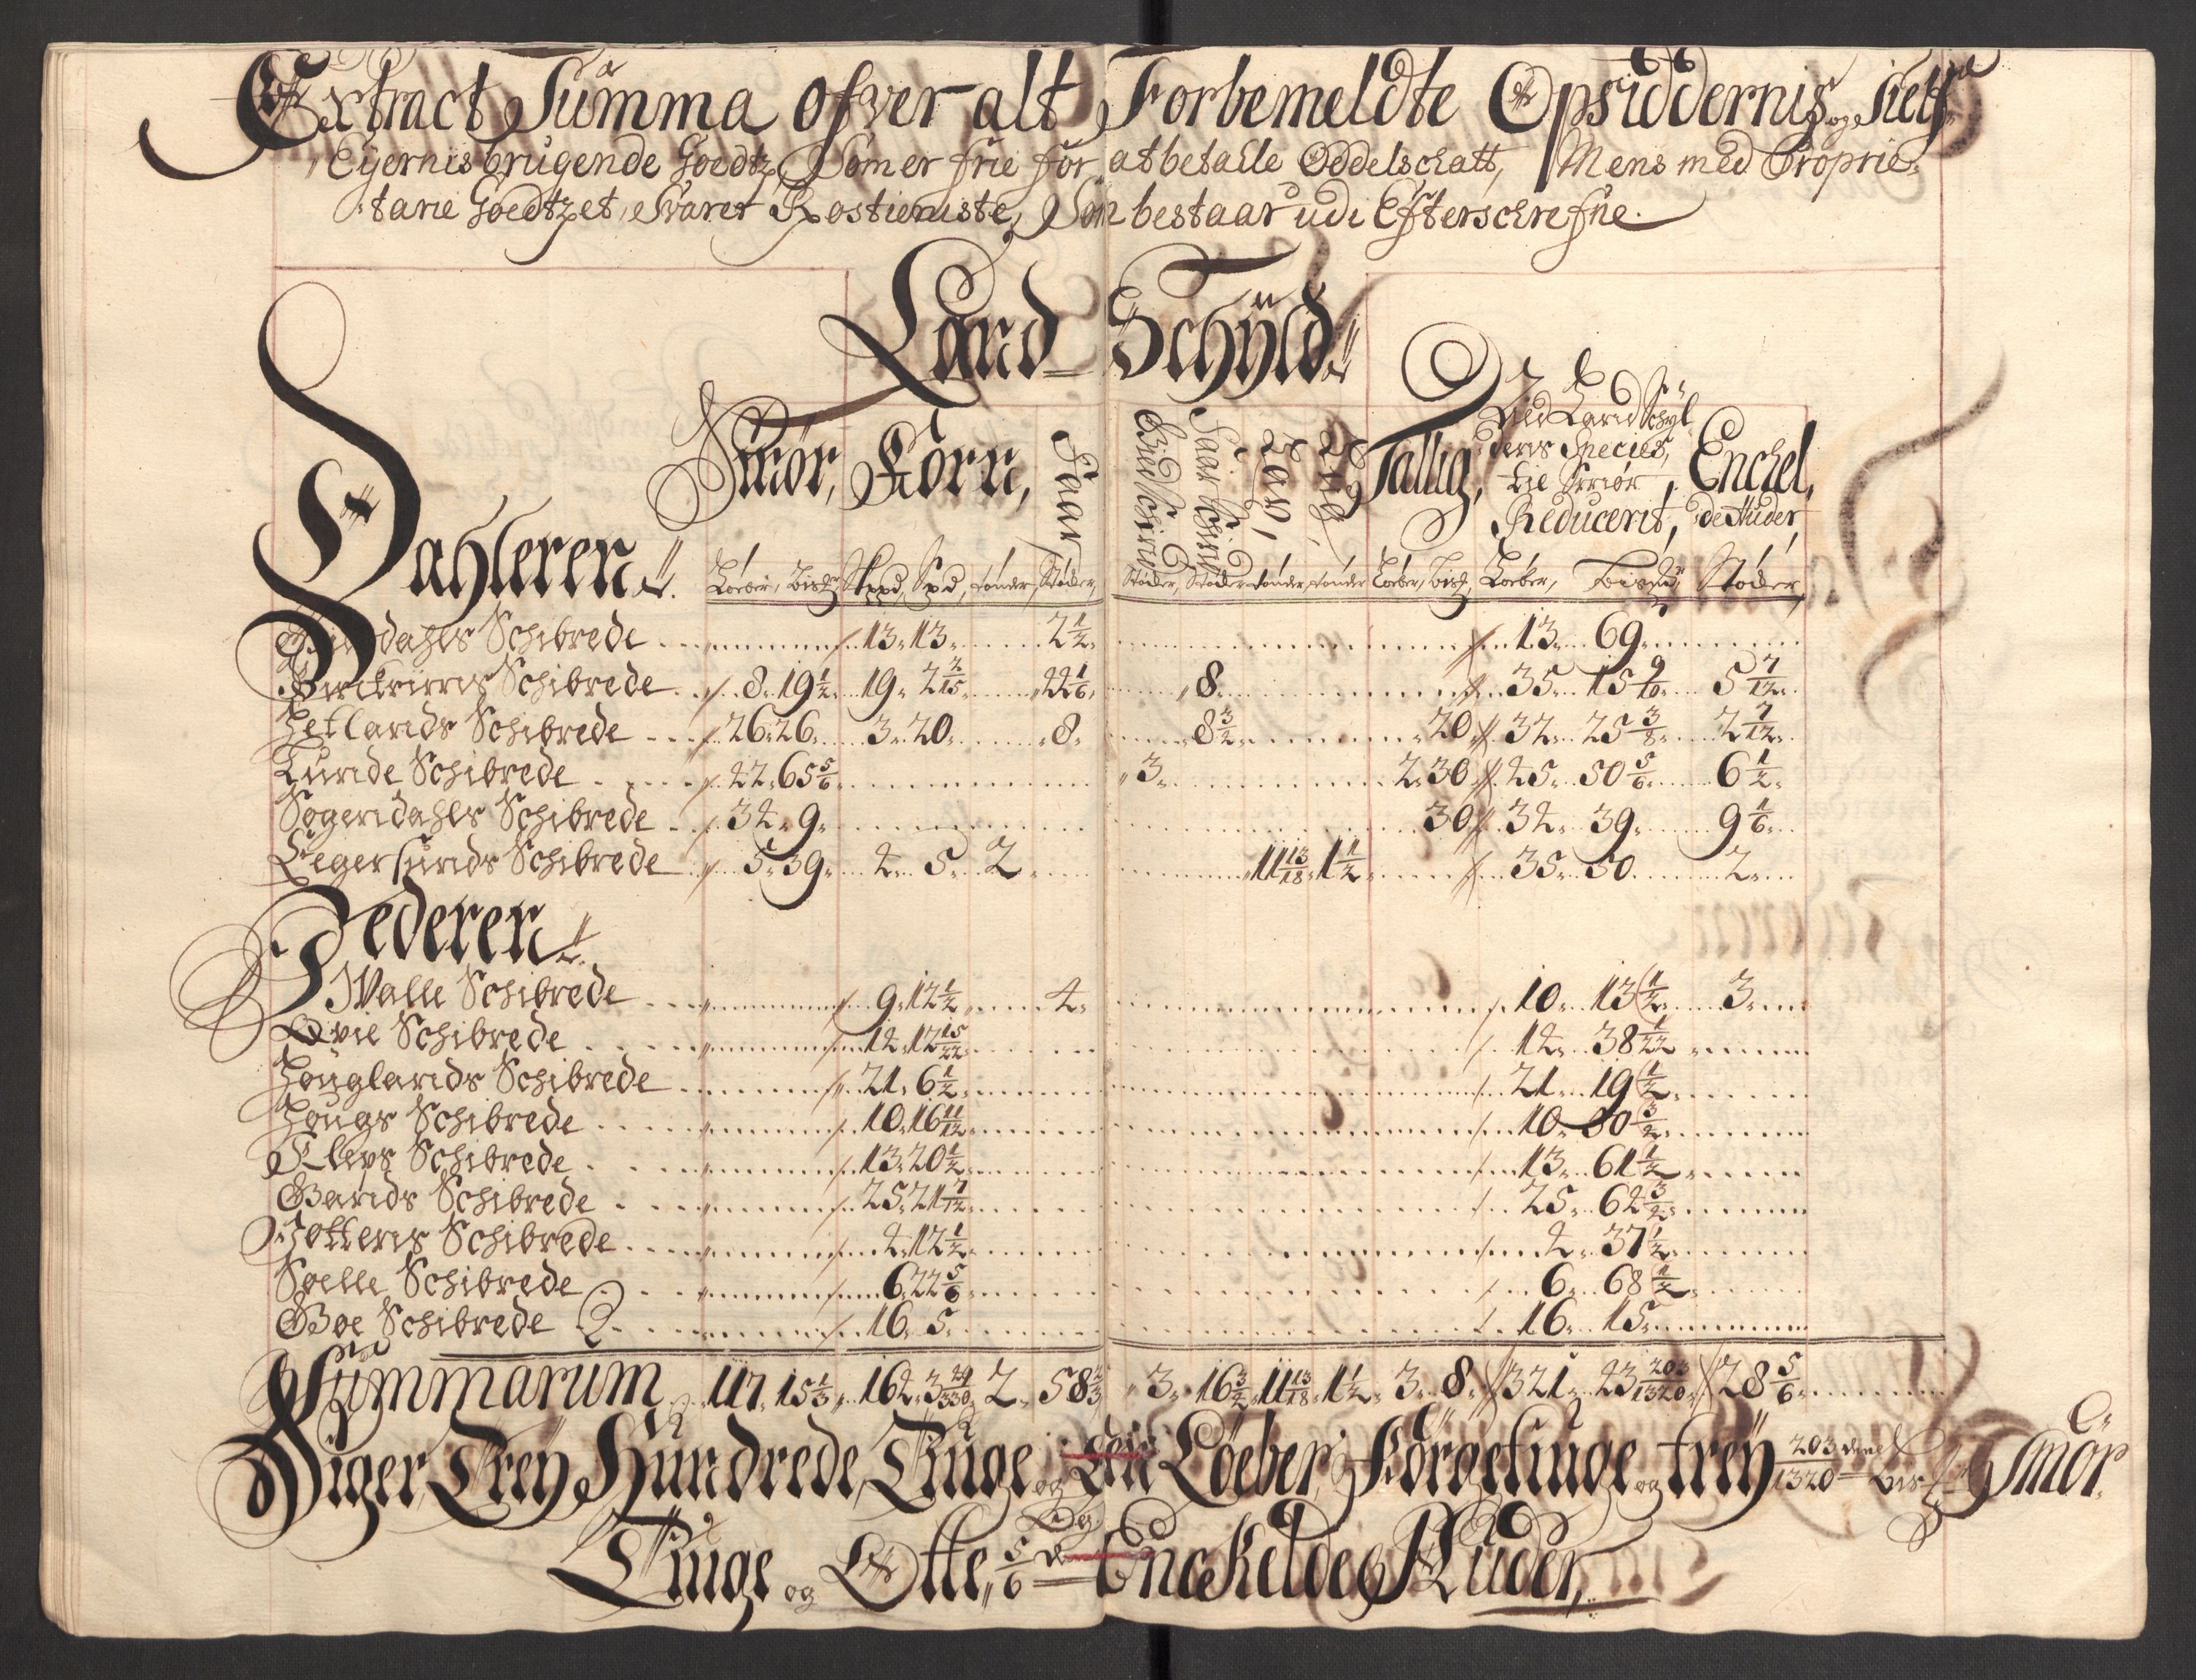 Extract Summa ofver alt Forbemeldte Opsiddernis og Self
Eyernis brugende Goedtz, Som er frie for at betahle Oddelschatt, Mens med Proprie
tarie Goedtzet, Svarer Rostieniste, Som bestaar udi Efterschrefne.
Land Schÿld
Dahleren
Smør, Korn, Faar Tallig, Ald Land Schyl Enckel,
derns Species, til Smör Reducerit, de Huder,
Løeber, Bisd, Skppd, Spd, tønder, Støder, Støder, Støder tønder, tønder Løeber, Bisd, Løeber, Støder
dahls Schibrede 13. 13. 2 1/2 13. 69.
Schibrede 8. 19 1/2 19. 2 2/15 22 1/6 8. 35. 15 9/10 5 7/12
Hetlands Schibrede 26. 26. 3. 20. 8. 8 3/2 20 32. 25 3/8 2 7/12
Lunde Schibrede 22. 65 5/6 3. 2. 30 25. 50 5/6 6 1/2
Sogendahls Schibrede 32. 9. 30 32. 39. 9 1/6
Eegersunds Schibrede 5. 39. 2. 5. 2 11 13/18 1 1/2 35. 50. 2.
Jederen
Walle Schibrede 9. 12 1/2 2. 10. 13 1/2 3.
Qvie Schibrede 12. 17 15/22 12. 38 1/22
Houglands Schibrede 21. 6 1/2 21. 19 1/2
Hougs Schibrede 10. 16 11/12 10.
Kleps Schibrede 13. 20 1/2 13. 61 1/2
Gands Schibrede 25. 21 7/12 25. 62 3/2
Jottens Schibrede 2. 12 1/2 2. 37 1/2
Soelle Schibrede 6. 22 5/6 6. 68 1/2
Boe Schibrede 16. 5. 16. 15.
Summarum 117. 15 1/3 162. 3 29/330 2. 58 2/3 3. 16 3/2 11 13/18 1 1/2 3. 8. 321. 23 203/1320 28 5/6
Siger, Trey Hundrede, Tiuge og Løeber, og trey 203/1320 Smör
Og
Tiuge og Otte, 5/6 Enckelde Huder,